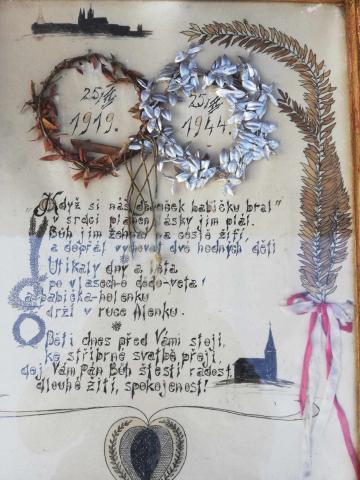 25/IV
1919.
25/IV
1944.
„Když si náš dědoušek babičku bral"
v srdci plamen lásky jim plál.
Bůh jim žehnal na cestě žití,
a dopřál vychovat dvě hodných dětí
Utíkaly dny a léta
po vlasech-o dědo-veta!
a babička-holenku
drží v ruce Alenku.
Děti dnes před Vámi stojí,
ke stříbrné svatbě přejí,
dej Vám Pán Bůh štěstí radost,
dlouhé žití, spokojenost!